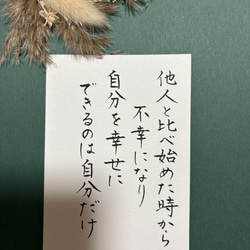 他人と比べ始めた時から
不幸になり
自分を幸せに
できるのは自分だけ